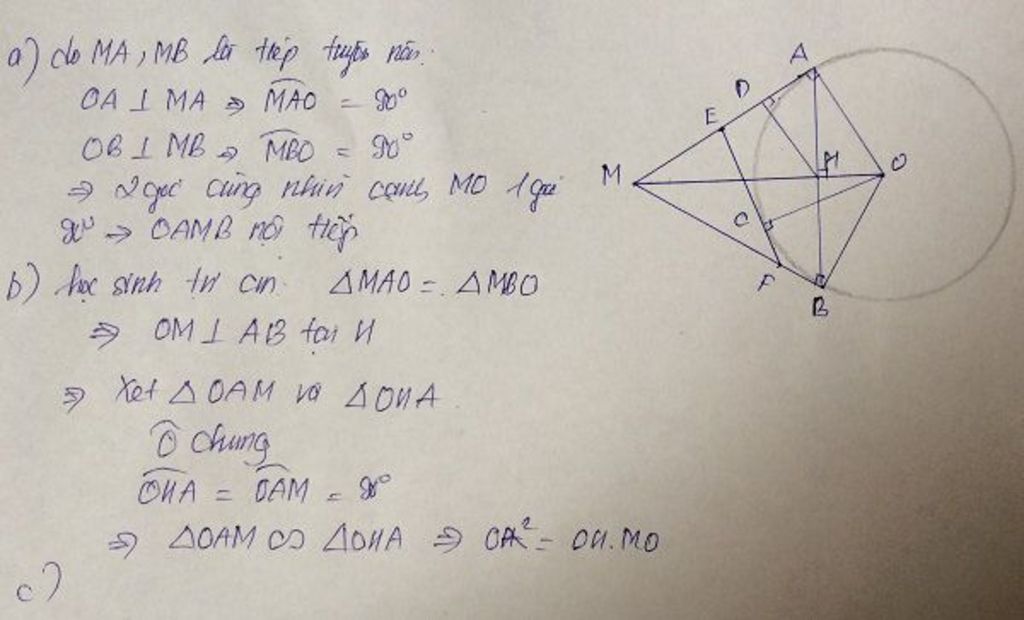 a) do MA, MB là tiếp tuyến nên:
OA ⊥ MA ⇒ MAO = 90°
OB ⊥ MB ⇒ MBO = 90°
⇒ 2 góc cùng nhìn cạnh MO 1 góc
90° ⇒ OAMB nội tiếp
b) học sinh tự cm. ΔMAO = ΔMBO
⇒ OM ⊥ AB tại H
⇒ Xét ΔOAM và ΔOHA
Ô chung
OHA = OAM = 90°
⇒ ΔOAM ∽ ΔOHA ⇒ OA² = OH.MO
c)
A
D
E
M
H
O
C
F
B